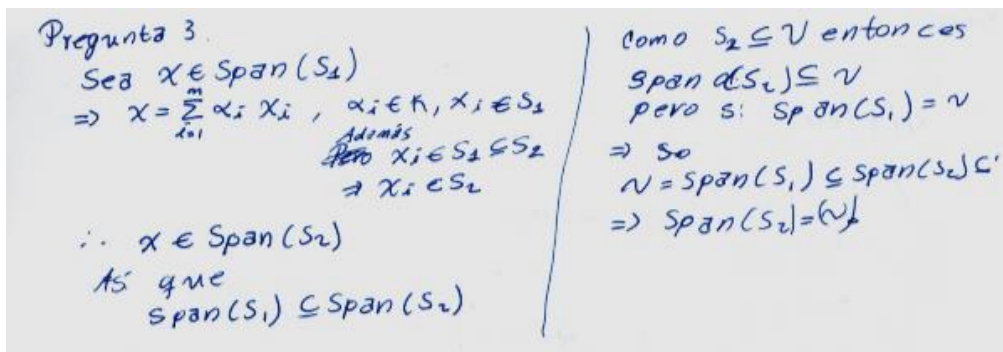 Pregunta 3.
Sea x ∈ Span(S₁)
⇒ x = ∑ᵢ₌₁ᵐ αᵢ xᵢ , αᵢ ∈ K, xᵢ ∈ S₁
Además
Pero xᵢ ∈ S₁ ⊆ S₂
⇒ xᵢ ∈ S₂
∴ x ∈ Span(S₂)
Así que
span(S₁) ⊆ Span(S₂)
Como S₂ ⊆ V entonces
span (S₂) ⊆ V
pero si Span(S₁) = V
⇒ so
V = Span(S₁) ⊆ Span(S₂) ⊆
⇒ Span(S₂) = V